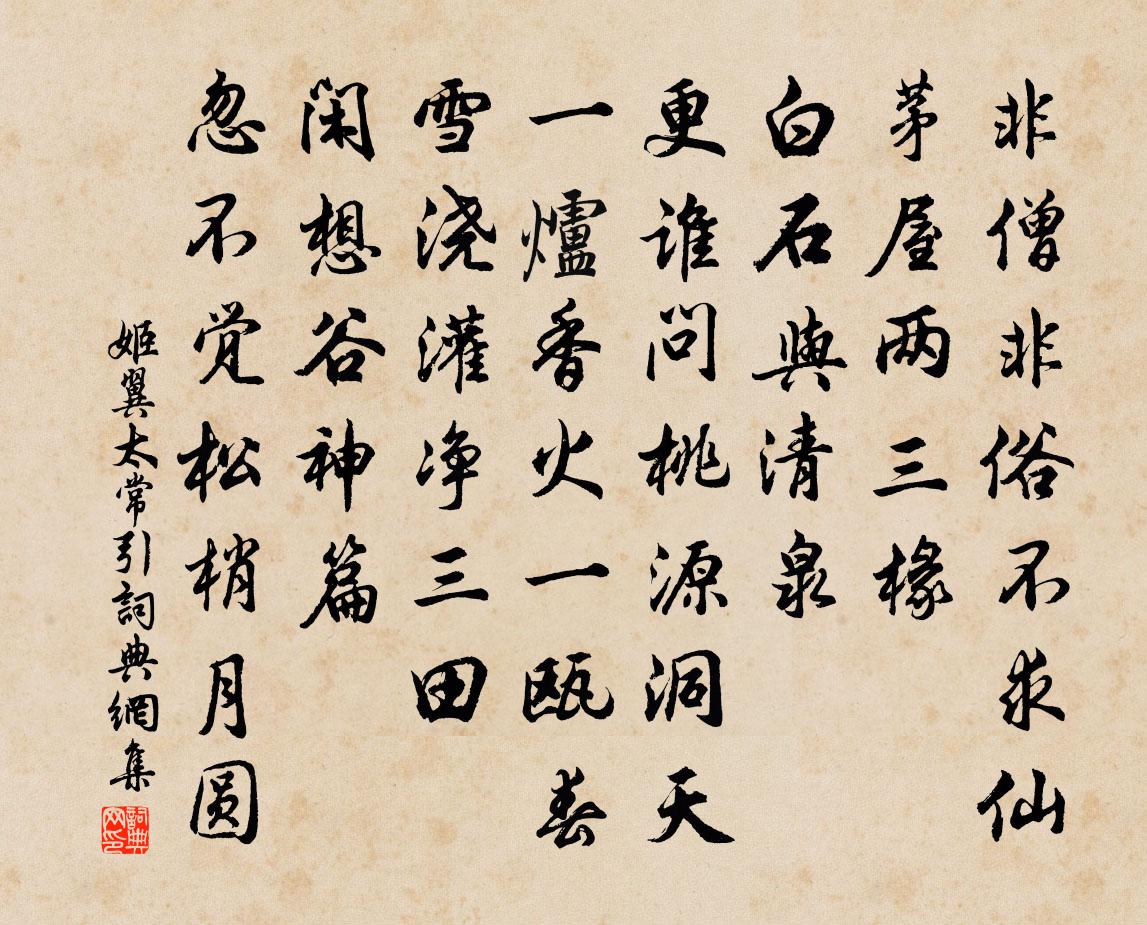 非僧非俗不求仙
茅屋两三椽
白石與清泉
更谁问桃源洞天
一爐香火一瓯春
雪浇灌净三田
闲想谷神篇
忽不觉松梢月圆
姬翼太常引詞典網集
詞典网印